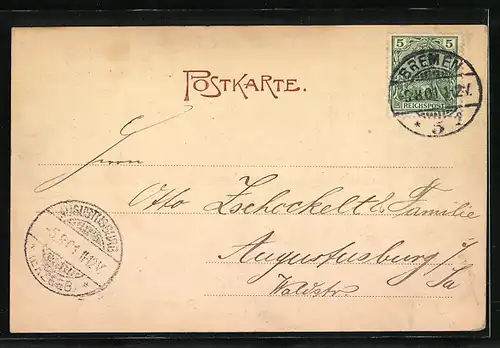 POSTKARTE.
5 5
REICHSPOST
BREMEN
* 5
Herrn
Otto Zschockelt & Familie
Augustusburg i/
Sa
Waldstr.
AUGUSTUSBURG
(ERZGEB.)